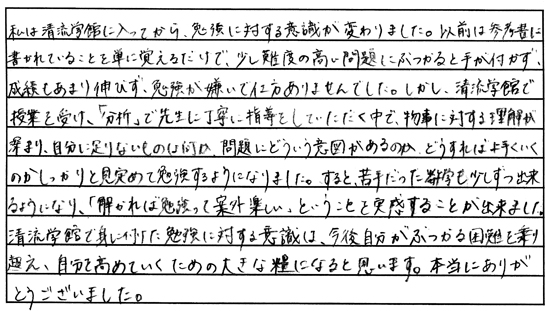 私は清流学館に入ってから、勉強に対する意識が変わりました。以前は参考書に
書かれていることを単に覚えるだけで、少し難度の高い問題にぶつかると手が付かず、
成績もあまり伸びず、勉強が嫌いで仕方ありませんでした。しかし、清流学館で
授業を受け、「分析」で先生に丁寧に指導をしていただく中で、物事に対する理解が
深まり、自分に足りないものは何か、問題にどういう意図があるのか、どうすれば上手くいく
のかしっかりと見定めて勉強するようになりました。すると、苦手だった数学も少しずつ出来
るようになり、「解かれば勉強って案外楽しい」ということを実感することが出来ました。
清流学館で身に付けた勉強に対する意識は、今後自分がぶつかる困難を乗り
超え、自分を高めていくための大きな糧になると思います。本当にありが
とうございました。